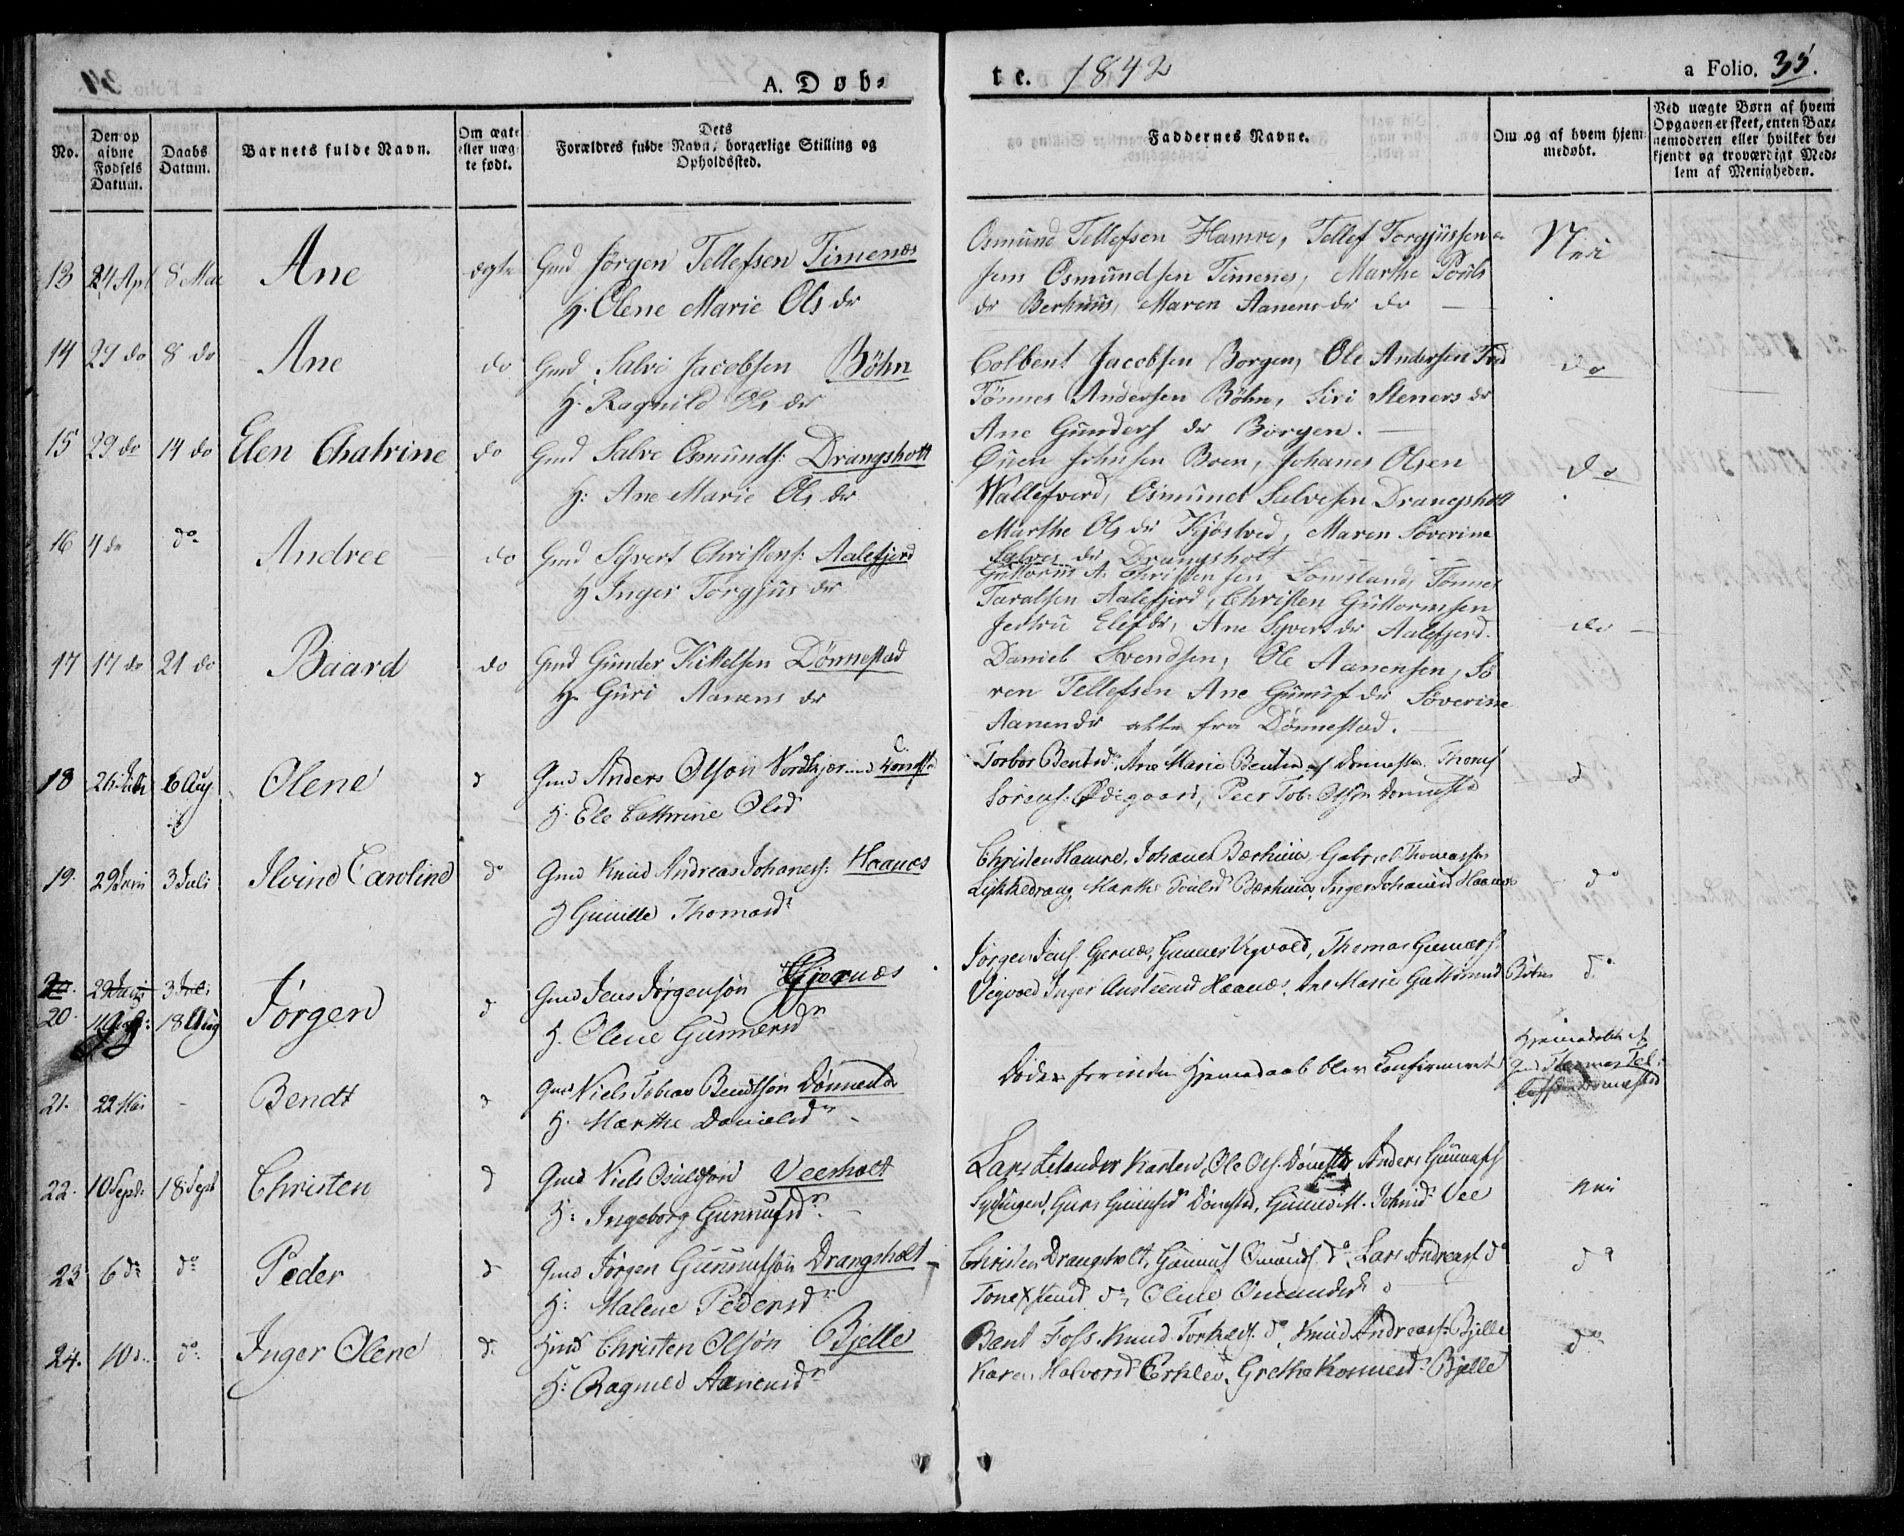 A. Døb-
te. 1842
a Folio. 35.
No.
Den opgivne Fødsels Datum.
Daabs Datum.
Barnets fulde Navn.
Om ægte eller uægte født.
Dets Forældres fulde Navn, borgerlige Stilling og Opholdssted.
Faddernes Navne.
Om og af hvem hjemmedøbt.
Ved uægte Børn af hvem Opgaven er skeet, enten Barnemoderen eller hvilket bekjendt og troværdigt Medlem af Menigheden.
13 24 Apl 8 Mai Ane ægte Gmd Jörgen Tellefsen Timenæs
H. Olene Marie Ols dr
Osmund Tellefsen Hamre, Tellef Torgjussen
Osmundsen Timenes, Marthe Pouls
dr Berhuus, Maren Aanens dr do
Nei
14 29 do 8 do Ane do Gmd Salve Jacobsen Böhn
H. Ragnild Ols dr
Colbent Jacobsen Borgen, Ole Andersen
Tönnes Andersen Böhn, Siri Steners dr
Ane Gunders dr Borgen.
do
15 29 do 14 do Elen Chatrine do Gmd Salve Osmunds: Drangsholt
H: Ane Marie Ols dr
Ouen Johnsen Boen, Johanes Olsen
Wallesverd, Osmund Salvesen Drangsholt
Marthe Ols dr Kjöstved, Maren Söverine
Salves dr Drangsholt
do
16 4 do do Andree do Gmd Syvert Christens: Aalefjerd
H Inger Torgjus dr
Guttorm A. Christensen Somsland, Tönnes
Taralsen Aalefjerd, Christen Guttormsen
Elefs dr, Ane Syverts dr Aalefjerd.
do
17 17 do 21 do Baard do Gmd Gunder Kittelsen Dönnestad
H. Guri Aanens dr
Daniel Svendsen, Ole Aanensen, Sö
ren Tellefsen Ane Gunufs dr Söverine
Aanens dr alle fra Dönnestad.
18 26 Juli 6 Aug Olene d Gmd Anders Olson
H. Ele Cathrine Olsd
Torbor Bentsd, Ane Marie Bentsd af Dønnestad, Thomas
Sørens: Ødegaard, Peer Tob: Olsøn Dønnestd
d
19. 29 Juni 3 Juli Ilvind Caroline do Gmd Knud Andreas Johanes: Haanæs
H Gunille Thomasdr
Christen Hamre, Johanes Bærhuus, Gabriel Thomassen
Marthe Poulsd Bærhuus, Inger Johansd Haanæs
do
20. 29 Juni 3 Juli
20. 18 Aug Jörgen d Gmd Jens Jørgensøn Gjernæs
H. Olene Gunnersdr
Jørgen Jens: Gjernæs, Gunner Vigvold, Thomas Gunners:
Vigvold Inger Haanæs, Ane Marie Böhn
do
21. 22 Mai - Bendt d Gmd Niels Tobias Bendtsøn Dønnestad
H. Marthe Danielsdr
Døde forinden Hjemedaab blev Confirmeret
Hjemedøbt af
Gmd Thomas Tel-
lefsøn Dønnestad
22. 10 Sept: 18 Sept Christen d Gmd Niels Osuldsøn Veerholt
H: Ingeborg Gunnufsdr
Lars Ole Ols: Dønnestad, Anders Gunnufs:
Guri Dønnestad, Johnsd: Vee
nei
23 6 do do Peder d Gmd Jørgen Gunnufsøn Drangsholt
H: Malene Pedersdr
Christen Drangsholt, Gunnuf Omunds: do, Lars Andreas: do
Tone do, Olene Omundsdr
do
24. 10 d. do Inger Olene d. Hmd Christen Olsøn Bjelle
H: Ragnild Aanensdr
Bent Foss, Knud do, Knud Andreas: Bjelle
Karen Halvorsd Erklev, Grethe Bjelle
do